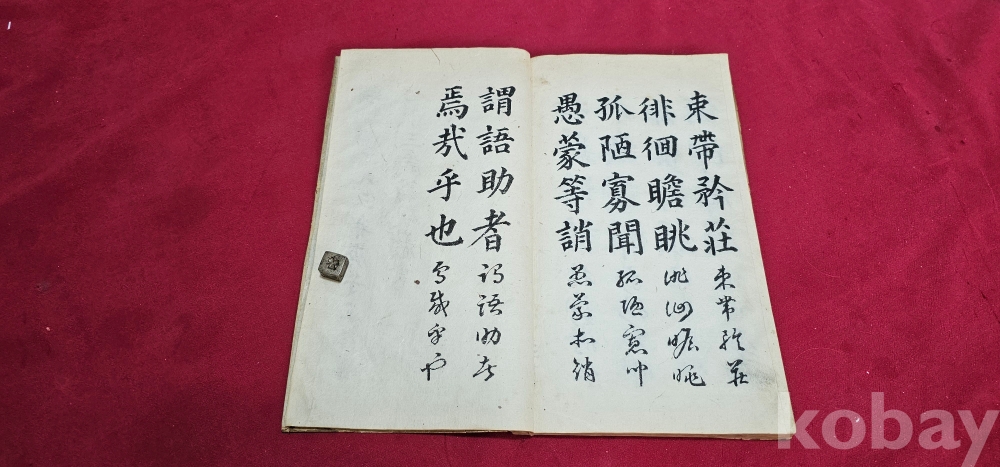 束帶矜莊
束帶矜莊
徘徊瞻眺
徘徊瞻眺
孤陋寡聞
孤陋寡聞
愚蒙等誚
愚蒙等誚
謂語助者
謂語助者
焉哉乎也
焉哉乎也
kobay